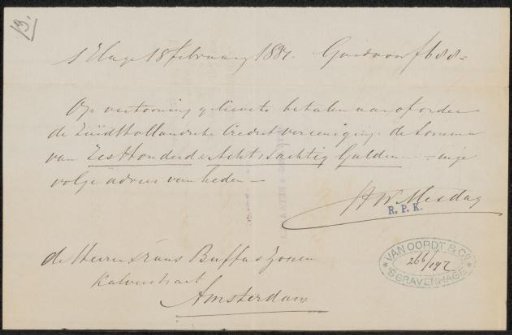 13.
s'Hage 18 februarij 1881. Goed voor f 688=
Op vertooning gelieve te betalen aan of order
de Zuid Hollandsche Credietvereeniging de somma
van Zes Honderd en Acht & tachtig Gulden
volgs advies van heden
H W Mesdag
R. P. K.
de Heeren Frans Buffa & Zonen
Kalverstraat
Amsterdam
VAN OORDT & Co
'S GRAVENHAGE